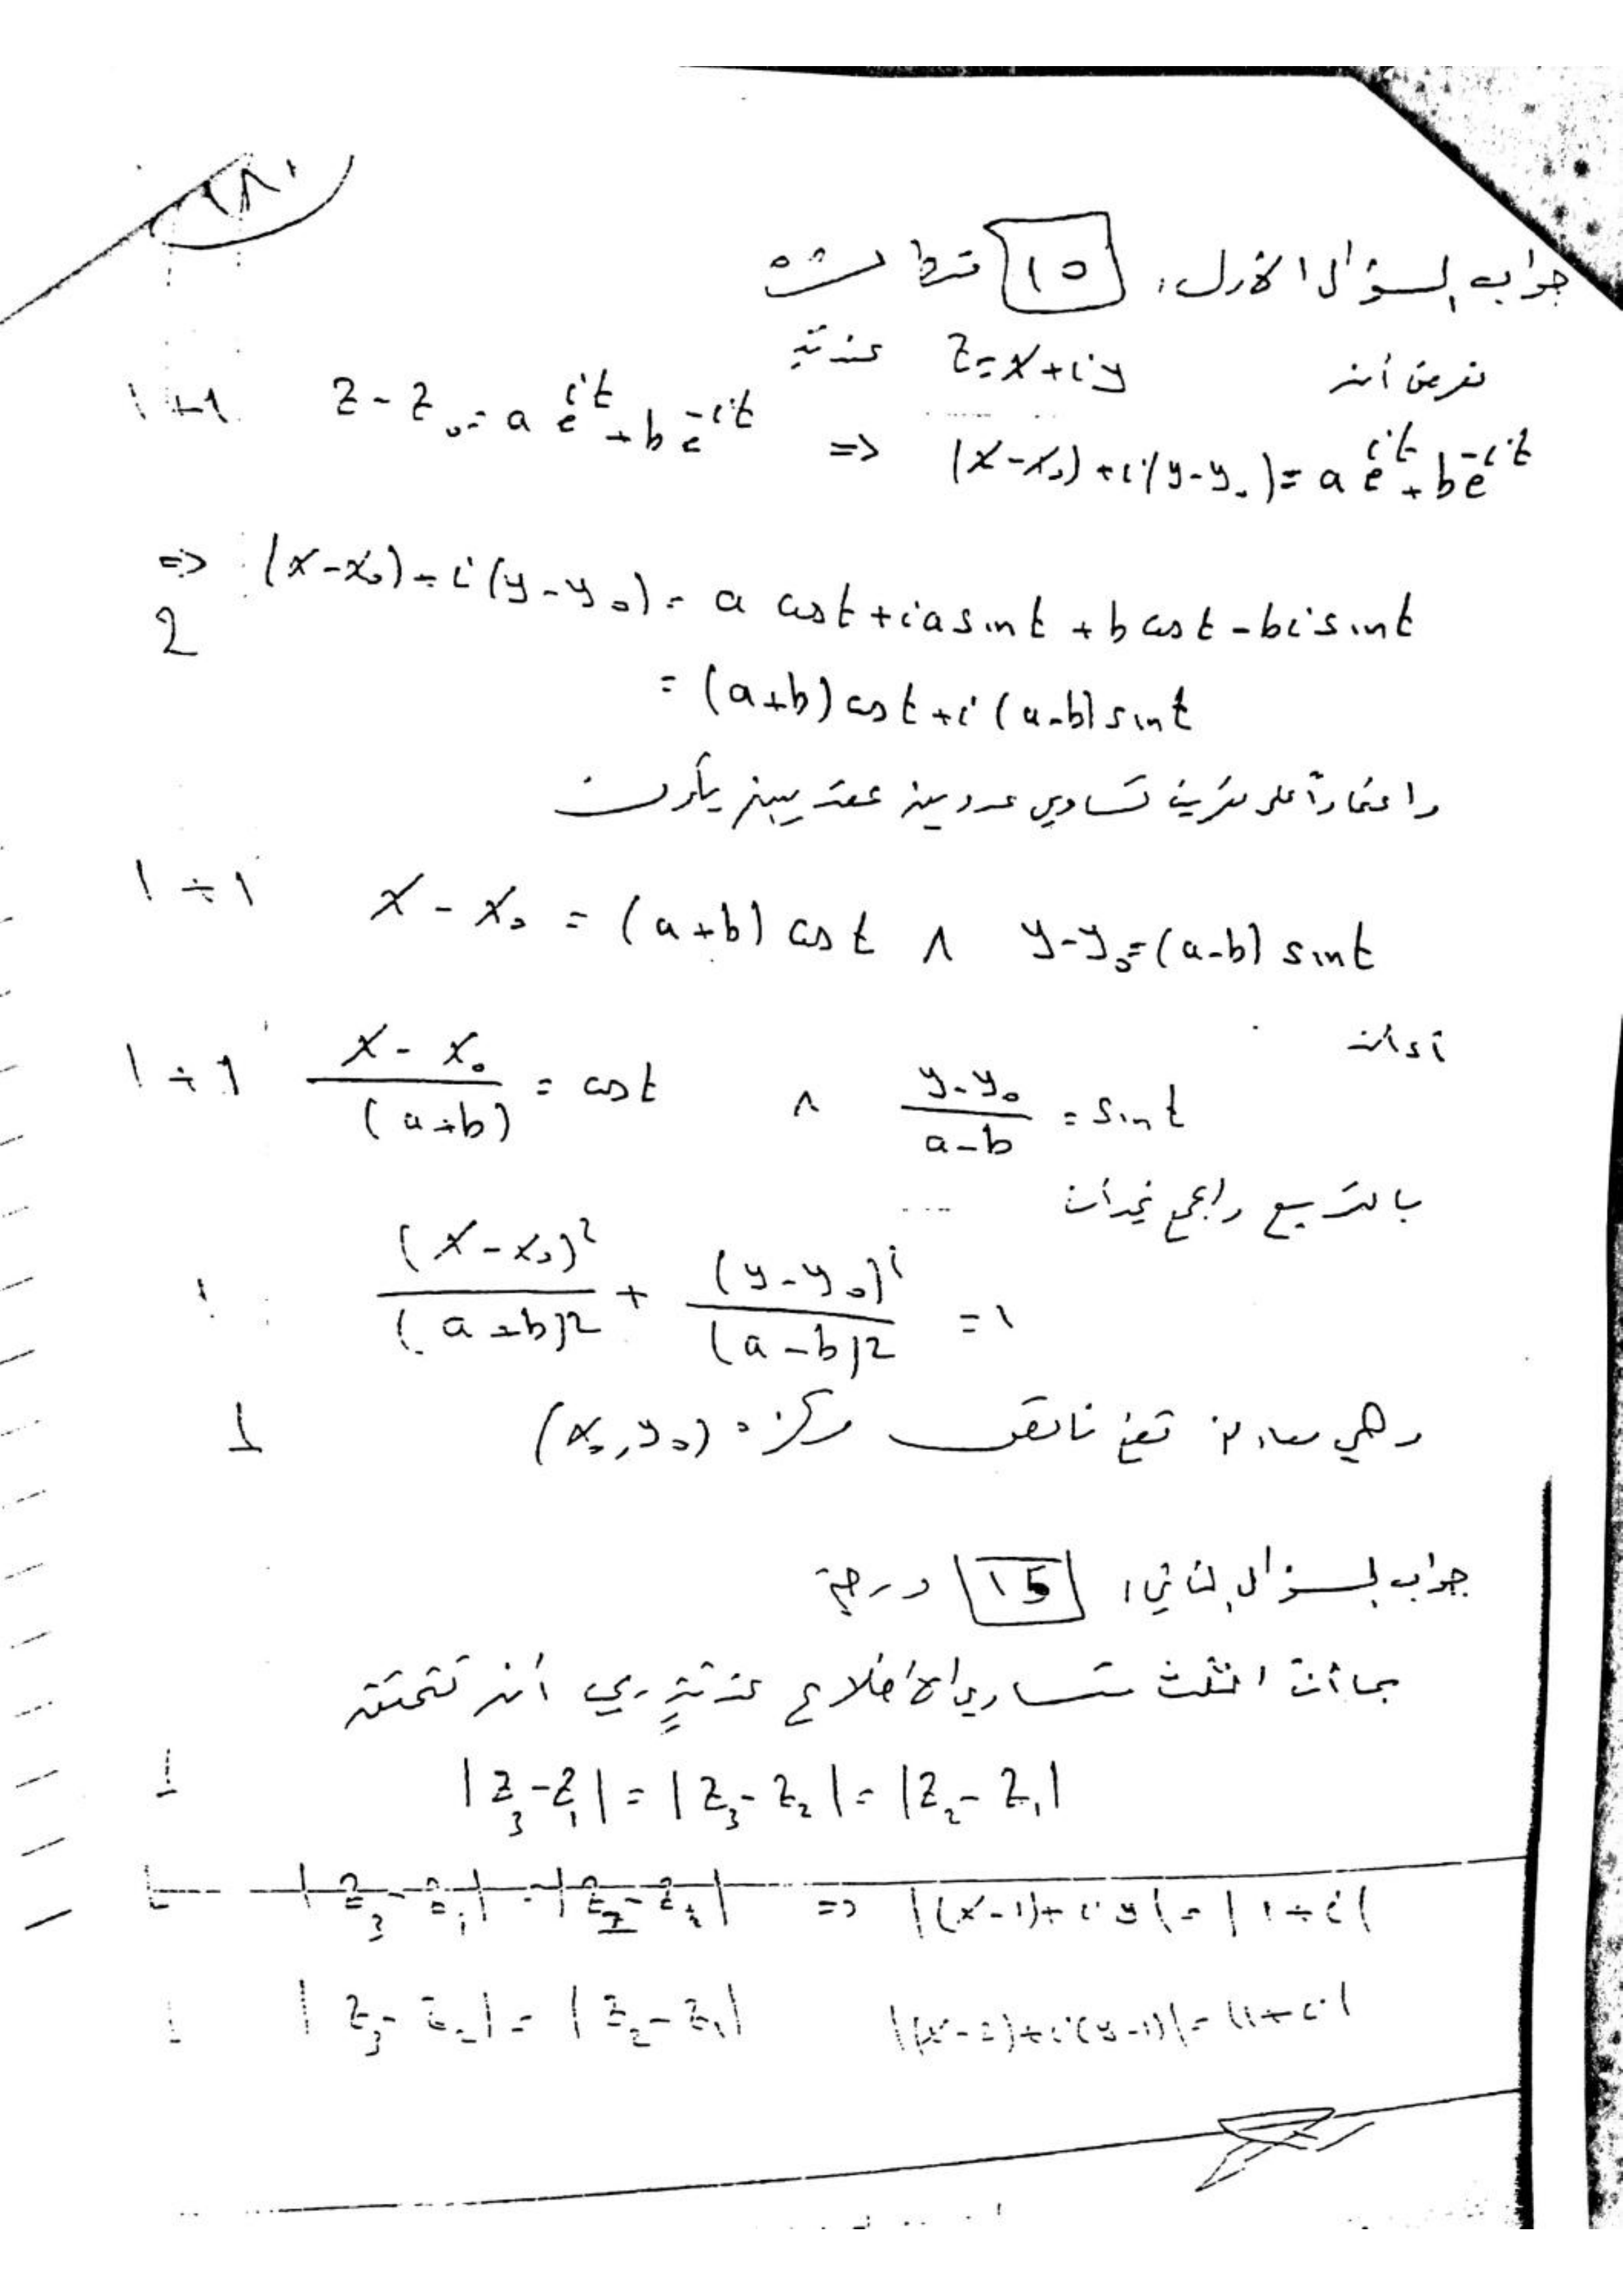 جواب السؤال الأول: 10
نفرض أن z = x + iy عندئذ
1+1 z - z₀ = a e^{it} + b e^{-it} => (x - x₀) + i(y - y₀) = a e^{it} + b e^{-it}
=> (x - x₀) + i(y - y₀) = a cos t + i a sin t + b cos t - b i sin t
2
= (a+b) cos t + i(a-b) sin t
واعتماداً على تعريف تساوي عددين عقديين يكون
1+1 x - x₀ = (a+b) cos t ∧ y - y₀ = (a-b) sin t
أي أن
1+1 (x - x₀)/(a+b) = cos t ∧ (y - y₀)/(a-b) = sin t
بالتربيع والجمع نجد أن
1 (x - x₀)²/(a+b)² + (y - y₀)²/(a-b)² = 1
وهي معادلة قطع ناقص مركزه (x₀, y₀) 1
جواب السؤال الثاني: 15 درجة
بما أن المثلث متساوي الأضلاع عندئذٍ يجب أن تتحقق
1 |z₃ - z₁| = |z₃ - z₂| = |z₂ - z₁|
|z₃ - z₁| = |z₂ - z₁| => |(x-1) + iy| = |1+i|
1 |z₃ - z₂| = |z₂ - z₁| |(x-2) + i(y-1)| = |1+i|